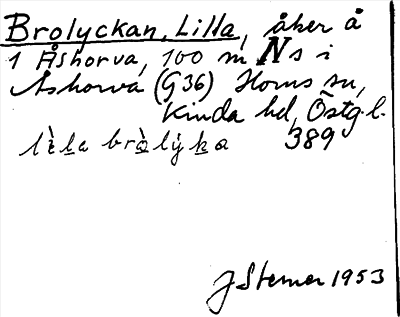 Brolyckan, Lilla, åker å
1 Åshorva, 100 m N s i
Åshorva (G 36) Horns sn,
Kinda hd, Östg. l.
lìl̲a brò̲lýk̲a 389
J Sterner 1953